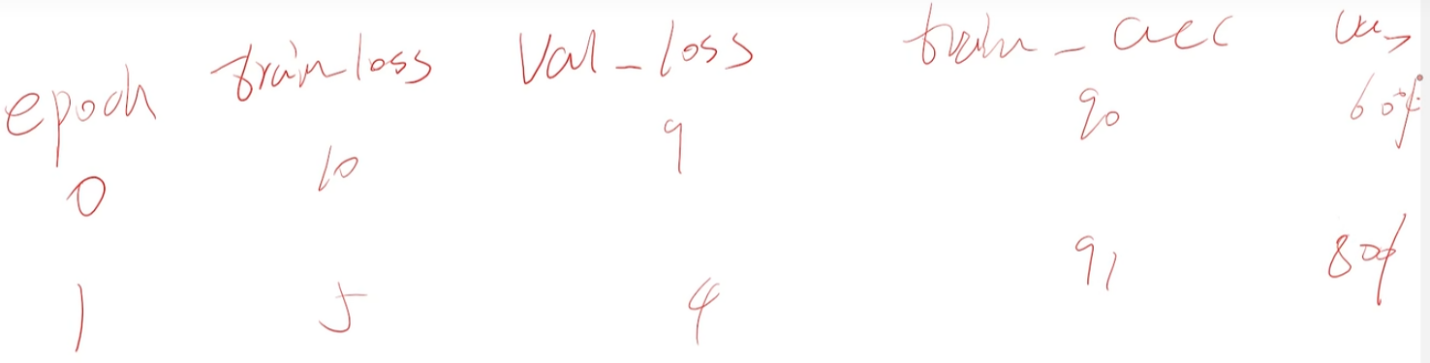 epoch train loss val_loss train_acc
0 10 9 90 60%
1 5 4 91 80%